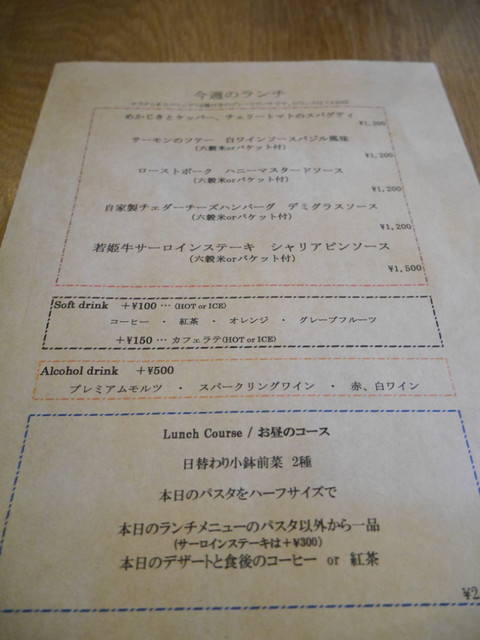 今週のランチ
めかじきとケッパー、チェリートマトのスパゲティ
¥1,200
サーモンのソテー 白ワインソースバジル風味
(六穀米orバケット付)
¥1,200
ローストポーク ハニーマスタードソース
(六穀米orバケット付)
¥1,200
自家製チェダーチーズハンバーグ デミグラスソース
(六穀米orバケット付)
¥1,200
若姫牛サーロインステーキ シャリアピンソース
(六穀米orバケット付)
¥1,500
Soft drink +¥100 … (HOT or ICE)
コーヒー ・ 紅茶 ・ オレンジ ・ グレープフルーツ
+¥150 … カフェラテ(HOT or ICE)
Alcohol drink +¥500
プレミアムモルツ ・ スパークリングワイン ・ 赤、白ワイン
Lunch Course / お昼のコース
日替わり小鉢前菜 2種
本日のパスタをハーフサイズで
本日のランチメニューのパスタ以外から一品
(サーロインステーキは+¥300)
本日のデザートと食後のコーヒー or 紅茶
¥2